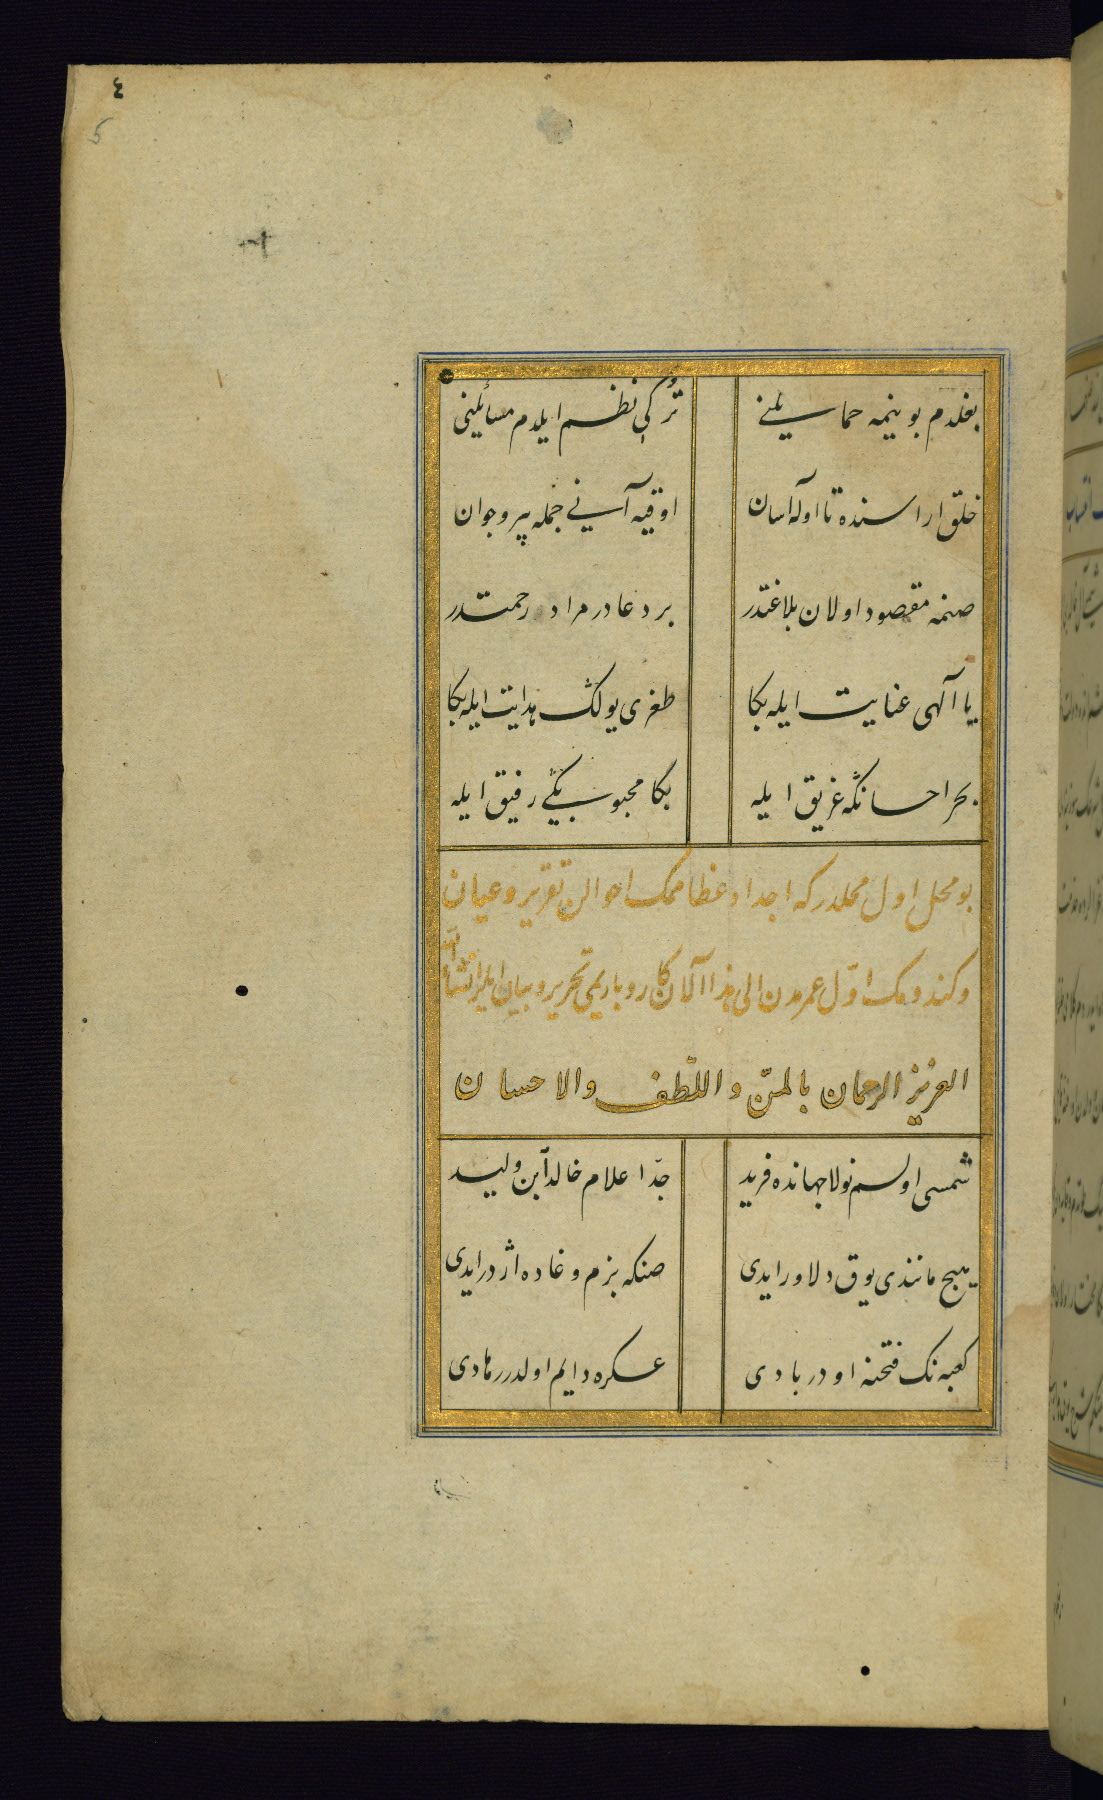 ٤
5
بغلدم بوینمه حمایلنی ترکی نظم ایلدم مسائلینی
خلق اراسنده تا اوله اسان اوقیه آنی جمله پیر و جوان
صنمه مقصود اولان بلاغتدر بر دعادر مراد رحمتدر
یا آلهی عنایت ایله بکا طغری یولک هدایت ایله بکا
بحر احسانکه غریق ایله بکا محبوبیکی رفیق ایله
بو محل اول محلدر که اجداد عظاممک احوالن تقریر و عیان
وکندومک اوّل عمرمدن الی هذا الآن کار و باریمی تحریر و بیان ایلرم انشاء الله
العزیز الرحمان بالمنّ واللّطف والاحسان
شمسی اولسم نولا جهانده فرید جدّ اعلام خالد ابن ولید
هیچ مانندی یوق دلاور ایدی صنکه بزم وغاده اژدر ایدی
کعبه نک فتحنه اودر بادی عسکره دایم اولدرر هادی